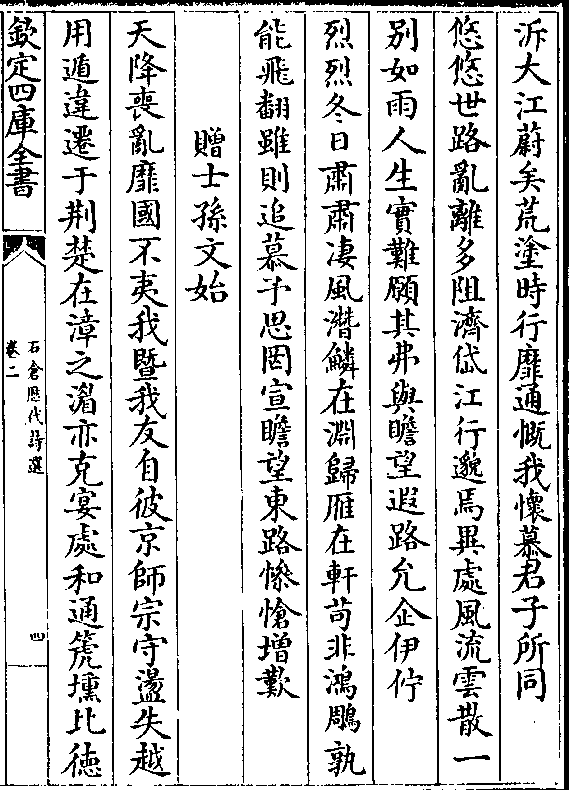 泝大江蔚矣荒塗時行靡通慨我懷慕君子所同
悠悠世路亂離多阻濟岱江行邈焉異處風流雲散一
別如雨人生實難願其弗與瞻望遐路允企伊佇
烈烈冬日肅肅凄風潛鱗在淵歸雁在軒茍非鴻鵰孰
能飛翻雖則追慕予思罔宣瞻望東路慘愴增歎
贈士孫文始
天降喪亂靡國不夷我暨我友自彼京師宗守盪失越
用遁違遷于荆楚在漳之湄亦克宴處和通箎壎比徳
欽定四庫全書
石倉歴代詩選
卷二
四